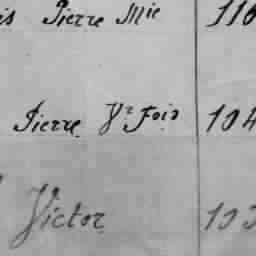 is Pierre Mie 116
Pierre Vr Fois 104
Victor 103